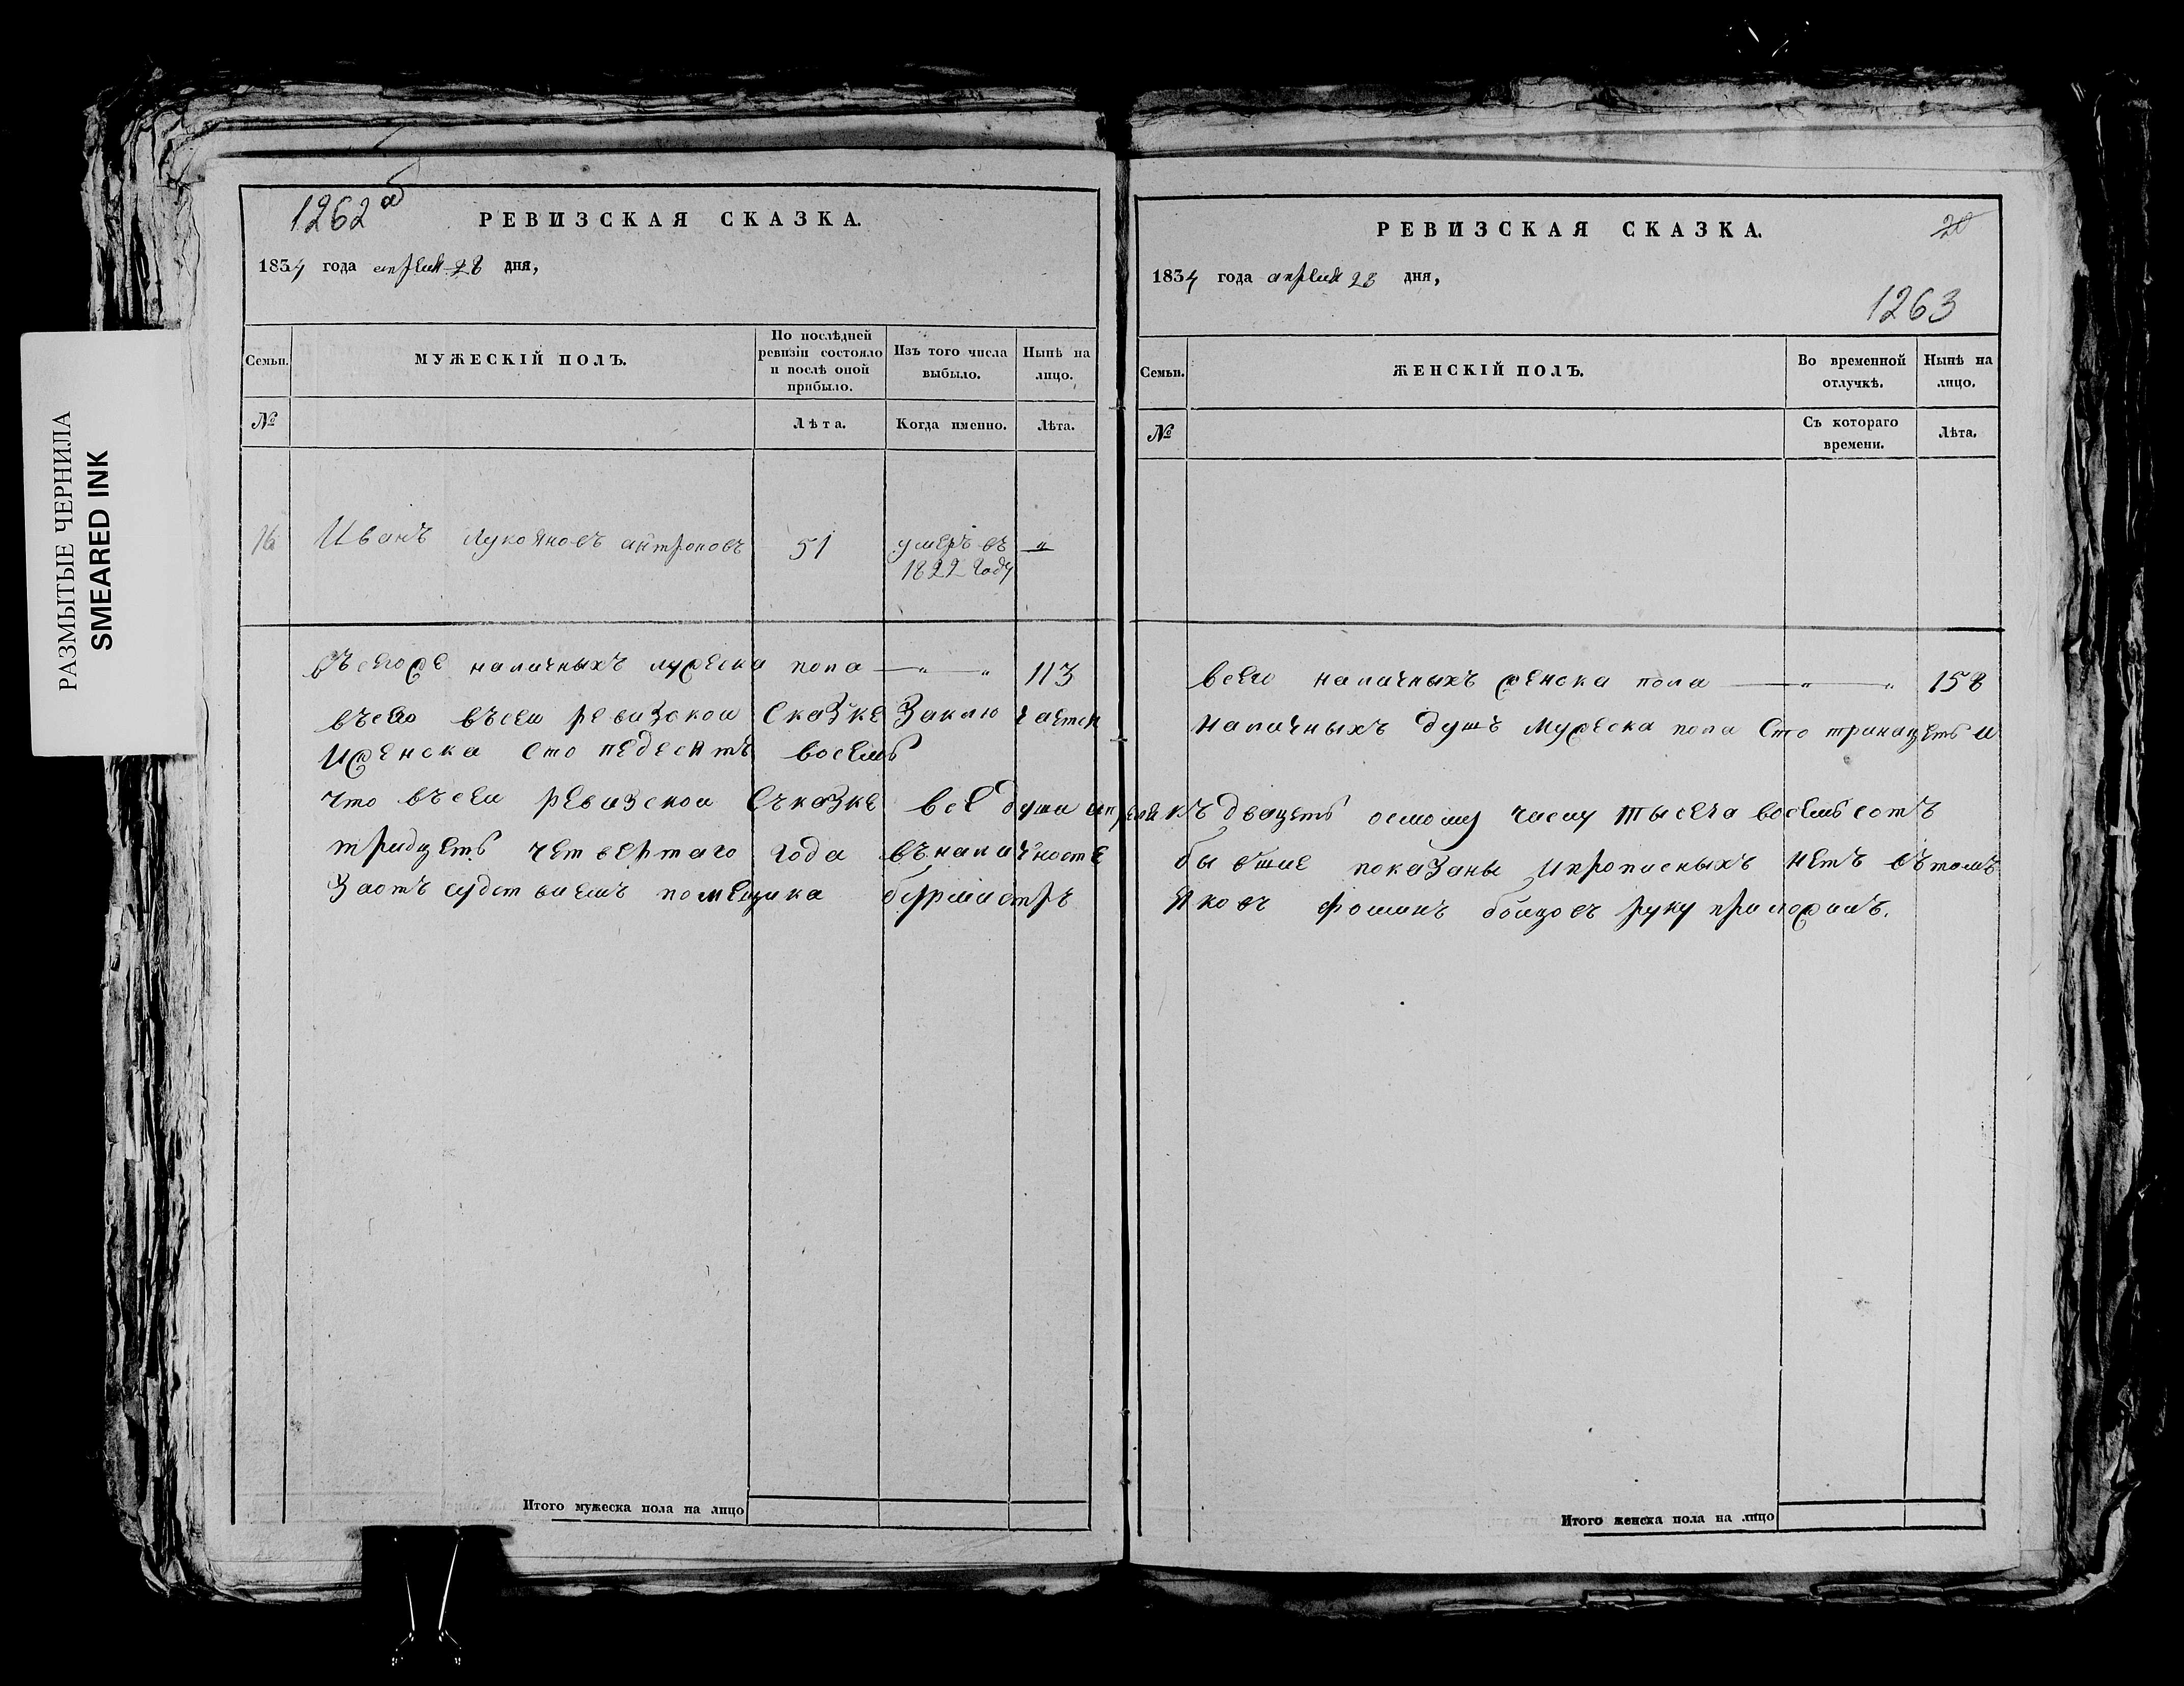 РАЗМЫТЫЕ ЧЕРНИЛА
SMEARED INK
1262 об
РЕВИЗСКАЯ СКАЗКА.
1834 года апреля 28 дня,
Семьи.
МУЖЕСКІЙ ПОЛЪ.
По послѣдней ревизіи состояло и послѣ оной прибыло.
Изъ того числа выбыло.
Нынѣ на лицо.
№
Лѣта.
Когда именно.
Лѣта.
16 Иванъ Лукояновъ антроповъ 51 умеръ въ 1822 году "
въсегоже наличныхъ мужеска пола — " — " 113
въсего въсеи ревизскои сказке Заключается
Иженска сто педесятъ восемь
что въсеи ревизскои съказке все души апреля
тридцеть четвертаго года въналичносте
Заотъсудствиемъ помещика бурмистръ
Итого мужеска пола на лицо
РЕВИЗСКАЯ СКАЗКА.
20
1834 года апреля 28 дня,
1263
Семьи.
ЖЕНСКІЙ ПОЛЪ.
Во временной отлучкѣ.
Нынѣ на лицо.
№
Съ котораго времени.
Лѣта.
всего наличныхъ женска пола — " — " 158
наличныхъ душъ мужеска пола Сто тринацеть и
къ двацеть осмому числу тысеча восемьсотъ
бывшие показаны ипрописныхъ нетъ втомъ
Яковъ фоминъ руку приложилъ.
Итого женска пола на лицо